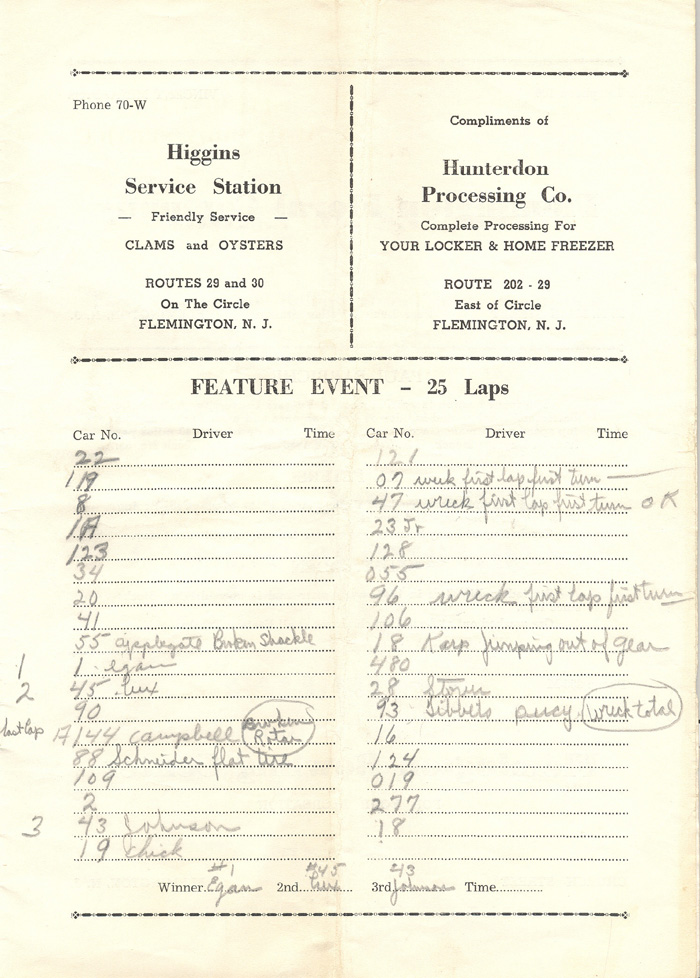 Phone 70-W
Higgins
Service Station
— Friendly Service —
CLAMS and OYSTERS
ROUTES 29 and 30
On The Circle
FLEMINGTON, N. J.
Compliments of
Hunterdon
Processing Co.
Complete Processing For
YOUR LOCKER & HOME FREEZER
ROUTE 202 - 29
East of Circle
FLEMINGTON, N. J.
FEATURE EVENT – 25 Laps
Car No. Driver Time
22
119
8
1A
123
34
20
41
55 applegate Broken Shackle
1 1. egan
2 45. Lux
90
last lap A144 Campbell Broken Rotar
88 Schneider flat tire
109
2
3 43 Johnson
19 Chick
Car No. Driver Time
121
07 wreck first lap first turn —
47 wreck first lap first turn OK
23 Jr
128
055
96 wreck first lap first turn
106
18 Karp jumping out of gear
480
28 Stover
93 Tibbets wreck total
16
124
019
277
18
Winner. #1 Egan 2nd... #45 Lux 3rd 43 Johnson Time..............